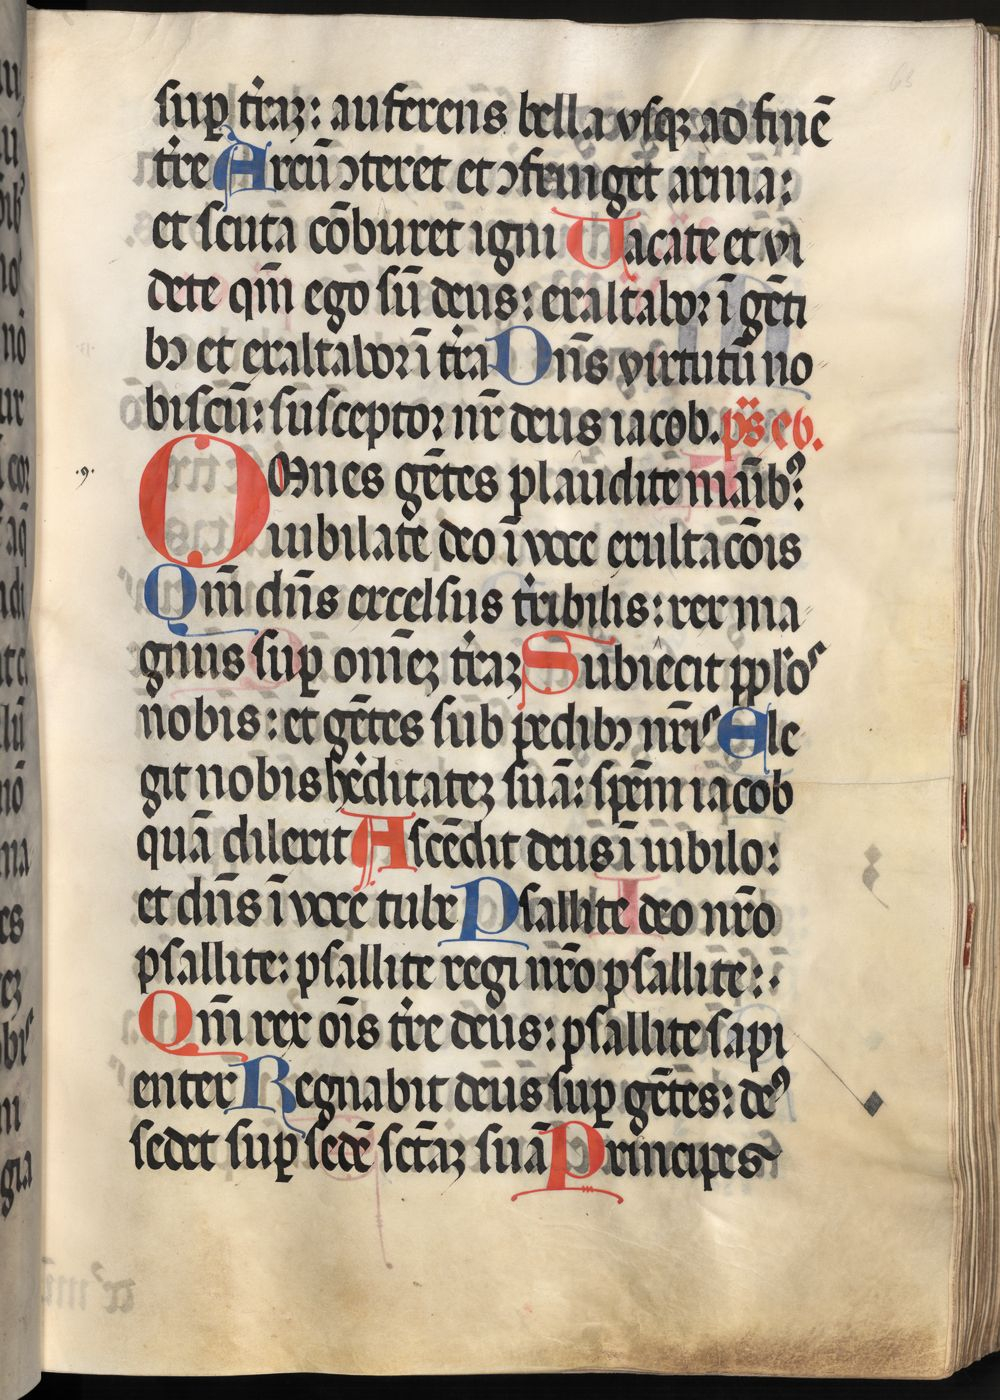 sup̲ tr̃aꝫ: auferens bella vsqꝫ ad finē
tr̃re Arcū ꝯteret et ꝯfringet arma:
et scuta cōburet igni Uacate et vi
dete qm̄ ego sū deus: exaltabor ī gēti
bꝫ et exaltabor ī tr̃ra Dn̄s virtutū no
biscū: susceptor nr̄ deus iacob. ps eb.
.9.
OMnes gētes plaudite māibꝰ:
iubilate deo ī voce exultacōis
Qm̄ dn̄s excelsus tr̃ribilis: rex ma
gnus sup̲ om̄eꝫ tr̃raꝫ Subiecit pplos
nobis: et gētes sub pedibꝫ nr̄is Ele
git nobis h̓editateꝫ suā: spēm iacob
quā dilexit Ascēdit deus ī iubilo:
et dn̄s ī voce tube Psallite deo nr̄o
psallite: psallite regi nr̄o psallite:.
Qm̄ rex oīs tr̃re deus: psallite sapi
enter Regnabit deus sup̲ gētes: deꝰ
sedet sup̲ sedē sctāꝫ suā Principes